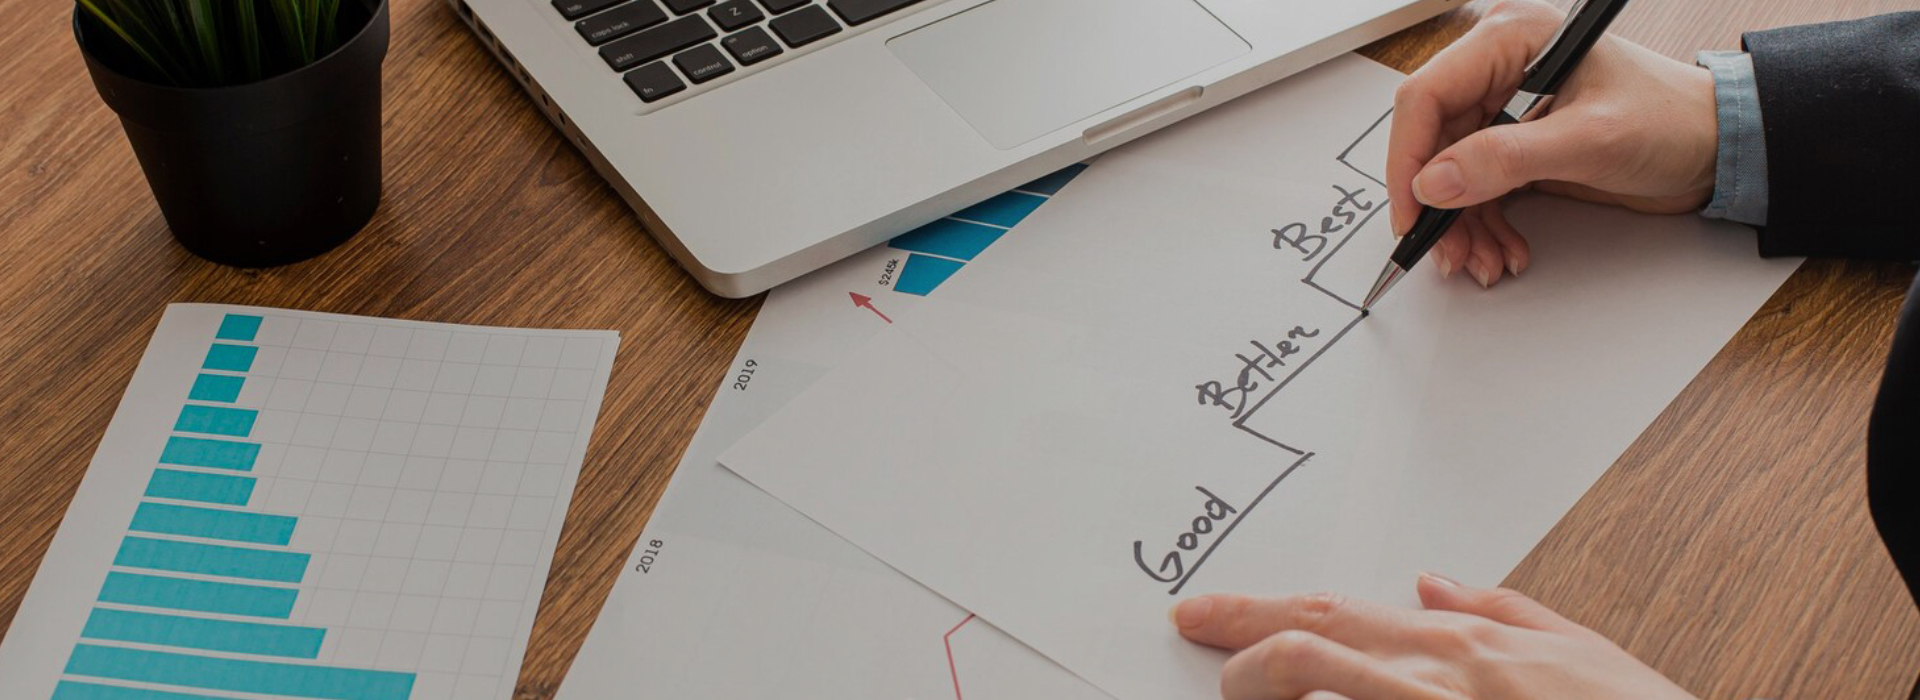 tab
caps lock
shift
Z
fn
control
option
$245k
2019
2018
Best
Better
Good